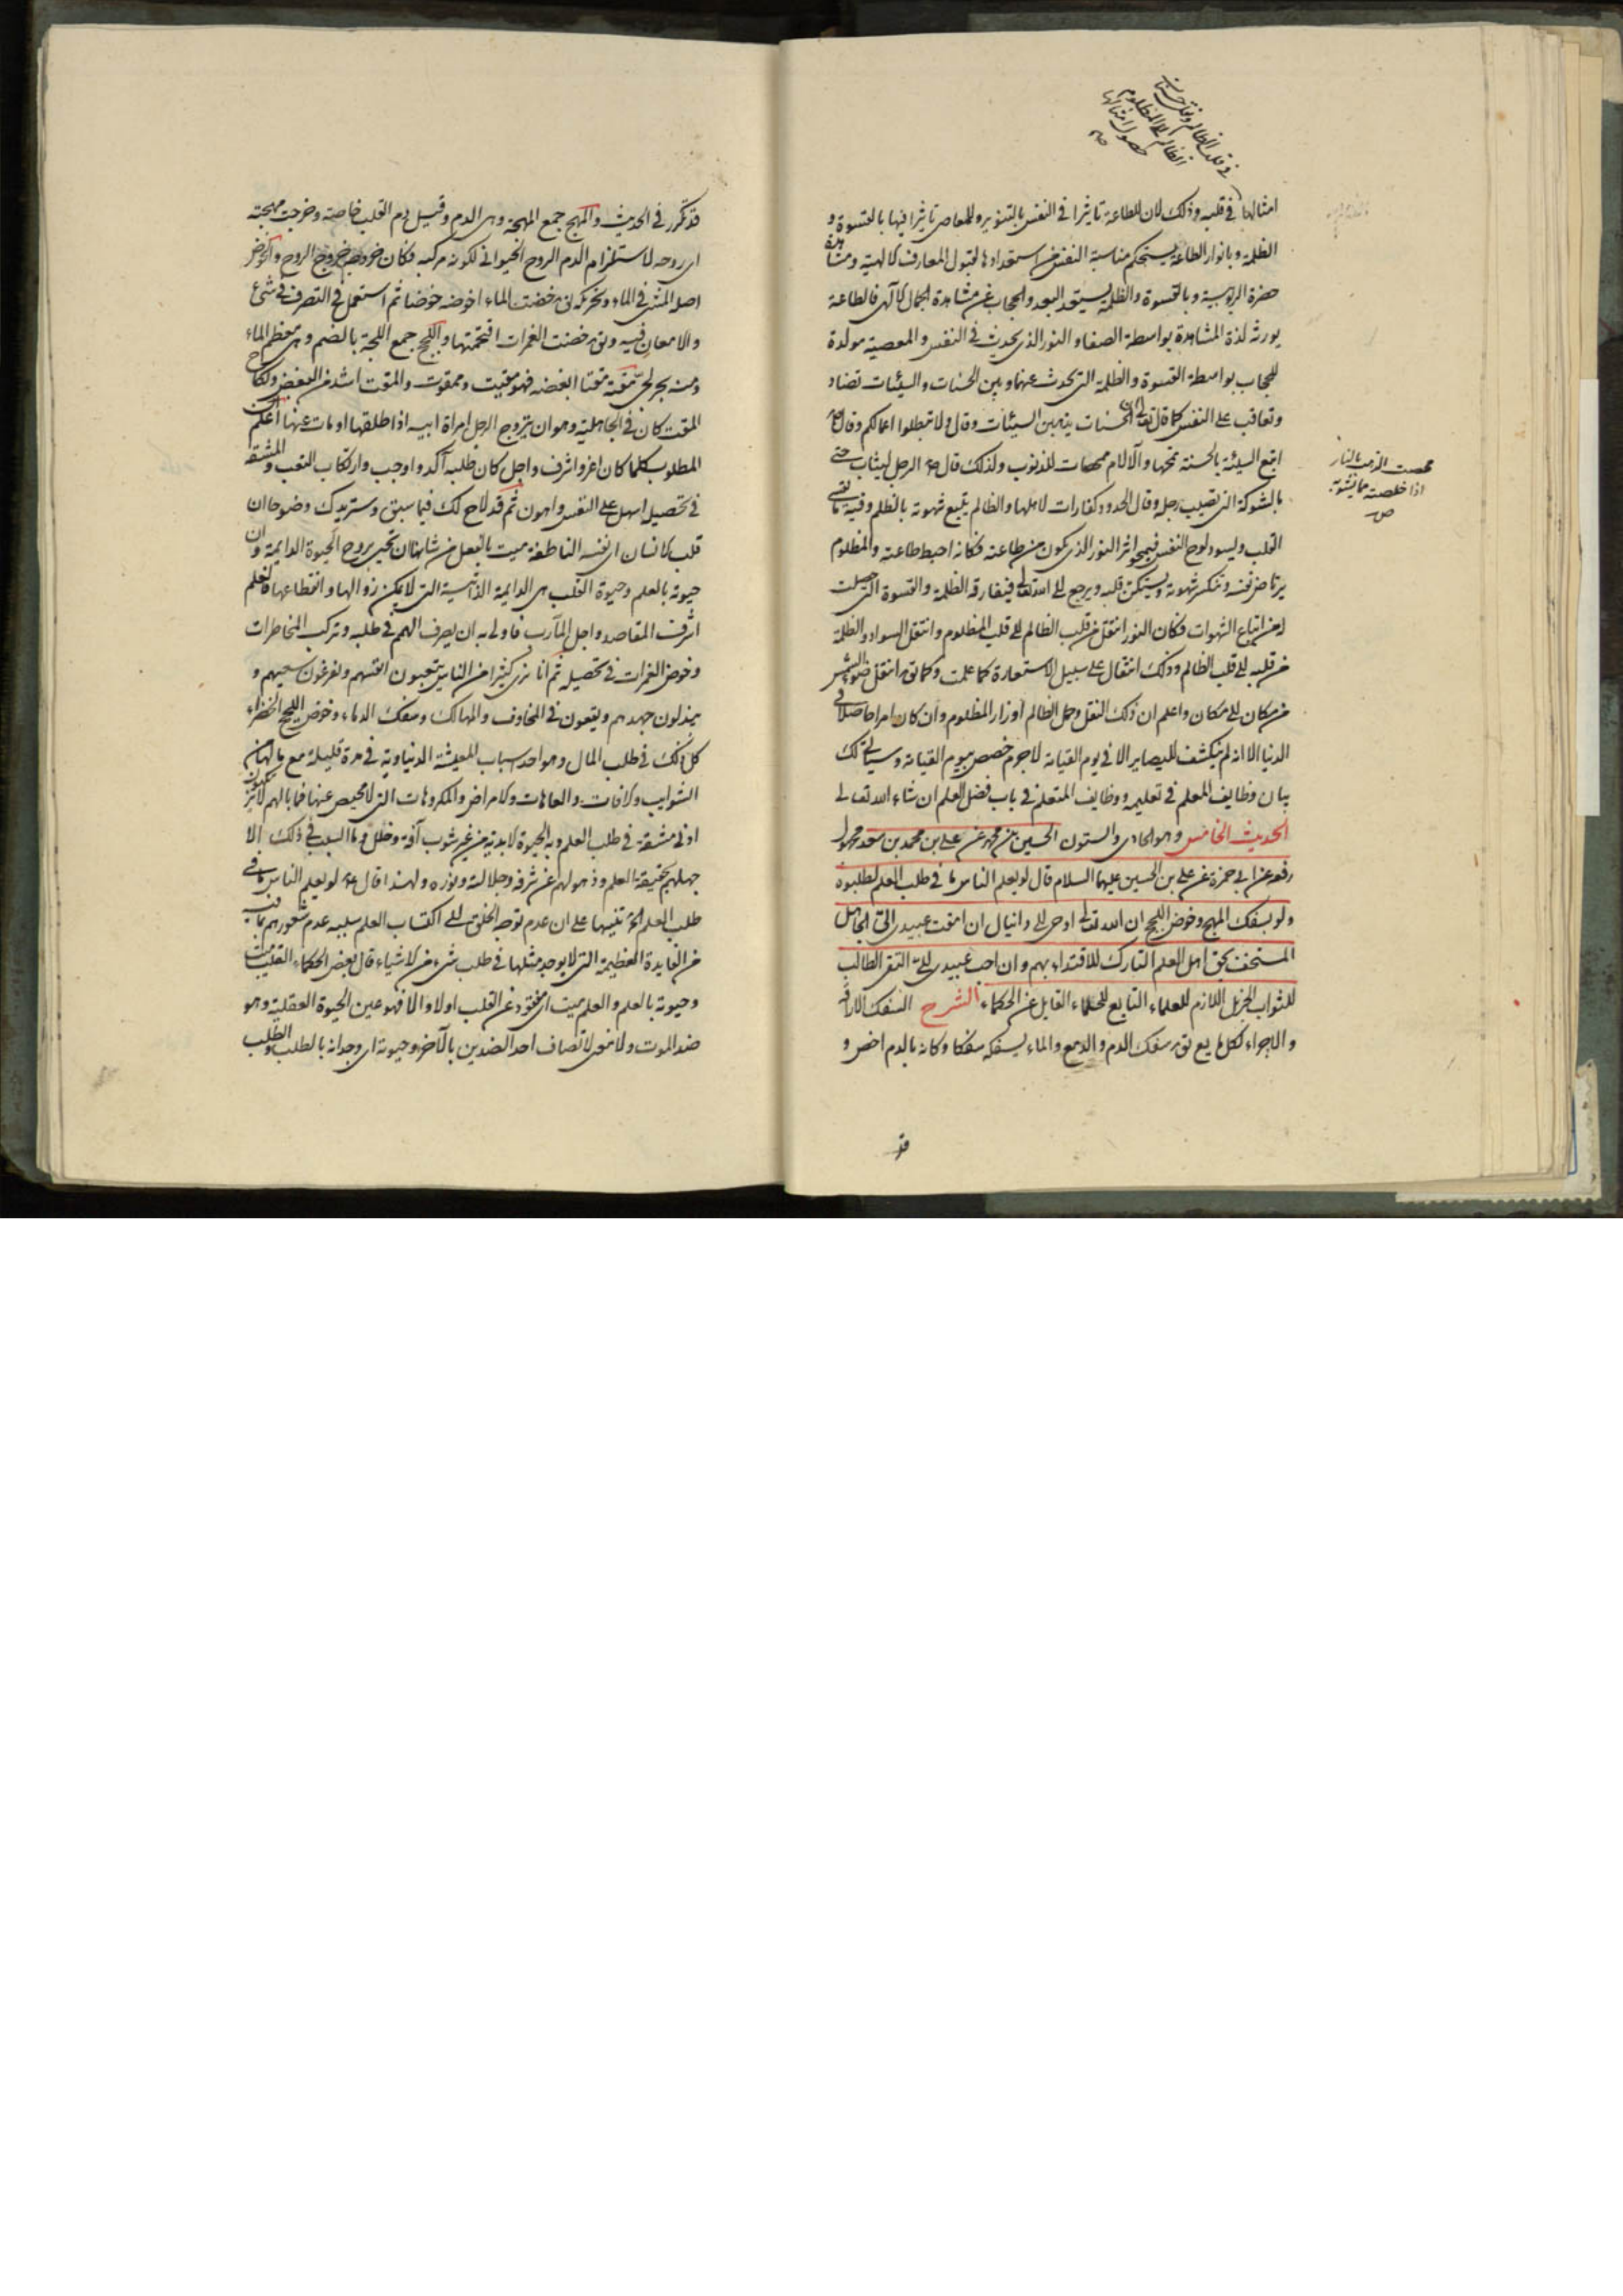 في قلب الظالم ونقل حسنات
الظالم الى المظلوم
حصول امثالها
امثالها في قلبه وذلك لان للطاعة تاثيرا في النفس بالتنوير وللمعاصي تاثيرا فيها بالقسوة و
الظلمة وبانوار الطاعة يستحكم مناسبة النفس من استعدادها لقبول المعارف الالهية ومشاهدة
حضرة الربوبية وبالقسوة والظلمة يستعد البعد والحجاب عن مشاهدة الجمال الالهي فالطاعة
يورث لذة المشاهدة بواسطة الصفاء والنور الذي يحدث في النفس والمعصية مولدة
للحجاب بواسطة القسوة والظلمة التي تحدث عنها وبين الحسنات والسيئات تضاد
وتعاقب على النفس كما قال تعالى ان الحسنات يذهبن السيئات وقال ولا تبطلوا اعمالكم وقال
اتبع السيئة بالحسنة تمحها والآلام ممحصات للذنوب ولذلك قال الرجل ليثاب حتى
محصت الذهب بالنار
اذا خلصته مما يشوبه
ص
بالشوكة التي تصيب رجله وقال الحدود كفارات لاهلها والظالم يتبع شهوته بالظلم وفيه ما يقسي
القلب ويسود لوح النفس فيمحو اثر النور الذي يكون من طاعته فكانه احبط طاعته والمظلوم
يرتاض نفسه وتنكسر شهوته ويستكن قلبه ويرجع الى الله تعالى فيفارقه الظلمة والقسوة التي حصلت
له من اتباع الشهوات فكان النور انتقل من قلب الظالم الى قلب المظلوم وانتقل السواد والظلمة
من قلبه الى قلب الظالم وذلك انتقال على سبيل الاستعارة كما علمت وكما يق انتقل ضوء الشمس
من مكان الى مكان واعلم ان ذلك النقل وحمل الظالم اوزار المظلوم وان كان امرا حاصلا في
الدنيا الا انه لم ينكشف للبصاير الا في يوم القيامة لاجرم خصص بيوم القيامة وسياتي لك
بيان وظايف المعلم في تعليمه ووظايف المتعلم في باب فضل العلم ان شاء الله تعالى
الحديث الخامس وهو الحادي والستون الحسين بن محمد عن علي بن محمد بن سعد
رفعه عن ابي حمزة عن علي بن الحسين عليهما السلام قال لو يعلم الناس ما في طلب العلم لطلبوه
ولو بسفك المهج وخوض اللجج ان الله تعالى اوحى الى دانيال ان امقت عبيدي الي الجاهل
المستخف بحق اهل العلم التارك للاقتداء بهم وان احب عبيدي الي التقي الطالب
للثواب الجزيل اللازم للعلماء التابع للحلماء القابل عن الحكماء الشرح السفك الاراقة
والاجراء لكل مايع يق سفك الدم والدمع والماء يسفكه سفكا وكانه بالدم اخص و
قد
قد تكرر في الحديث والمهج جمع المهجة وهي الدم وقيل دم القلب خاصة وخرجت مهجته
اي روحه لاستلزام الدم الروح الحيواني لكونه مركبه فكان خروجه خروج الروح والخوض
اصله المشي في الماء وتحريكه يق خضت الماء اخوضه خوضا ثم استعمل في التصرف في شيء
والامعان فيه ويق خضت الغمرات اقتحمتها واللجج جمع اللجة بالضم وهي معظم الماء
ومنه بحر لجي مقته مقتا ابغضه فهو مقيت وممقوت والمقت اشد من البغض ونكاح
المقت كان في الجاهلية وهو ان يتزوج الرجل امراة ابيه اذا طلقها او مات عنها اعلم ان
المطلوب كلما كان اعز واشرف واجل كان طلبه آكد واوجب وارتكاب التعب والمشقة
في تحصيله اسهل على النفس واهون ثم قد لاح لك فيما سبق وسنزيدك وضوحا ان
قلب الانسان اي نفسه الناطقة ميت بالفعل من شانها ان تحيى بروح الحيوة الدايمة وان
حيوته بالعلم وحيوة القلب هي الدايمة الذاتية التي لا يمكن زوالها وانقطاعها فالعلم
اشرف المقاصد واجل المآرب فاولى به ان يصرف الهم في طلبه وتركب المخاطرات
وخوض الغمرات في تحصيله ثم انا نرى كثيرا من الناس يتعبون انفسهم ويفرغون سعيهم و
يبذلون جهدهم ويقعون في المخاوف والمهالك وسفك الدماء وخوض اللجج الخضراء
كل ذلك في طلب المال وهو احد اسباب المعيشة الدنياوية في مدة قليلة مع ما لها من
الشوايب والافات والعاهات والامراض والمكروهات التي لا محيص عنها فما بالهم لا يرتكبون
ادنى مشقة في طلب العلم وبه الحيوة الابدية من غير شوب آفة وخلل وما السبب في ذلك الا
جهلهم بحقيقة العلم وذهولهم عن شرفه وجلالته ونوره ولهذا قال لو يعلم الناس ما في
طلب العلم الخ تنبيها على ان عدم توجه الخلق الى اكتساب العلم سببه عدم شعورهم بما فيه
من الفايدة العظيمة التي لا يوجد مثلها في طلب شيء من الاشياء قال بعض الحكماء القلب ميت
وحيوته بالعلم والعلم ميت اي مفقود عن القلب اولا والا فهو عين الحيوة العقلية وهو
ضد الموت ولا معنى لاتصاف احد الضدين بالآخر وحيوته اي وجدانه بالطلب والطلب